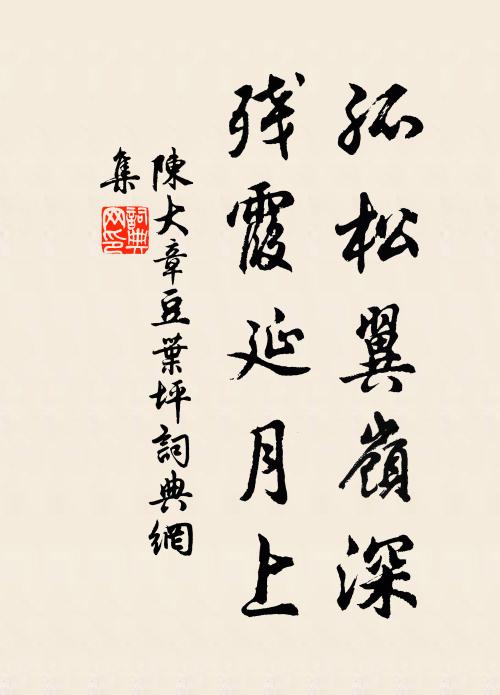 孤松翼嶺深
残霞延月上
陳大章豆葉坪詞典網
集
詞典
网印